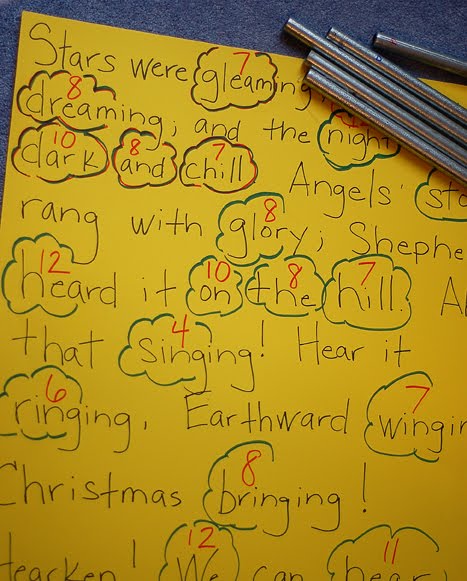 7
Stars were gleaming
8
dreaming; and the night
10 8 7
dark and chill Angels' sto
8
rang with glory; Shephe
12 10 8 7
heard it on the hill. A
4
that singing! Hear it
6 7
ringing, Earthward wingin
8
Christmas bringing!
12 11
earken! We can hear